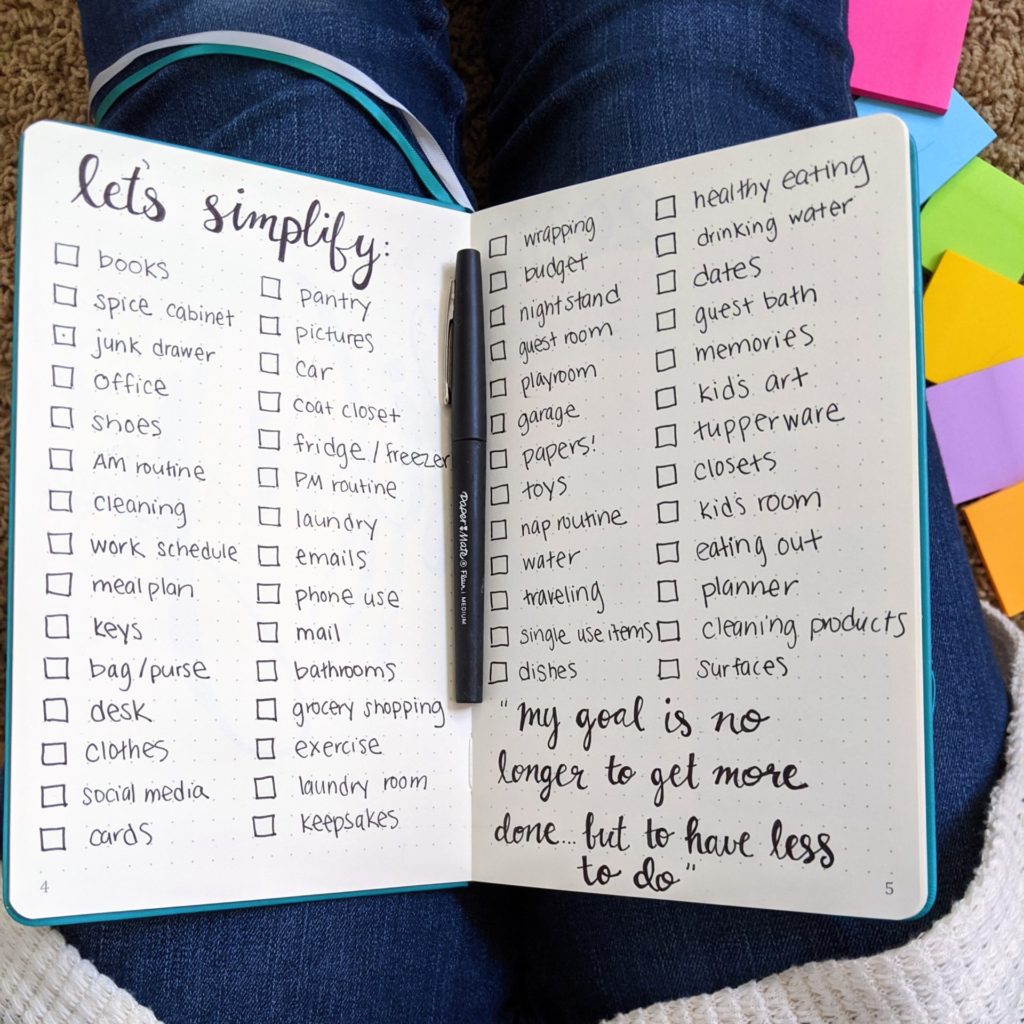 let's simplify:
books
spice cabinet
junk drawer
office
shoes
AM routine
cleaning
work schedule
meal plan
keys
bag/purse
desk
clothes
social media
cards
pantry
pictures
car
coat closet
fridge/freezer
PM routine
laundry
emails
phone use
mail
bathrooms
grocery shopping
exercise
laundry room
keepsakes
4
Paper Mate® Flair. MEDIUM
wrapping
budget
nightstand
guest room
playroom
garage
papers!
toys
nap routine
water
traveling
single use items
dishes
healthy eating
drinking water
dates
guest bath
memories
kid's art
tupperware
closets
kid's room
eating out
planner
cleaning products
surfaces
"my goal is no
longer to get more
done... but to have less
to do"
5